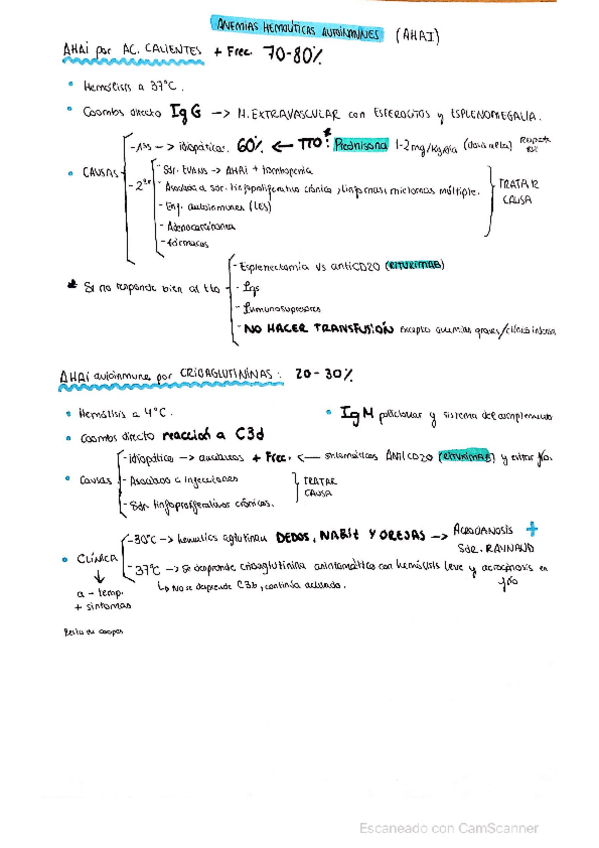 ANEMIAS HEMOLÍTICAS AUTOINMUNES (AHAI)
AHAI por AC. CALIENTES + Frec. 70-80%
• Hemólisis a 37°C.
• Coombs directo IgG → M. EXTRAVASCULAR con ESFEROCITOS y ESPLENOMEGALIA.
• CAUSAS
- 1ªs → idiopáticas. 60% ← TTO*: Prednisona 1-2mg/kg/día
- 2ªs
- Sdr. EVANS → AHAI + trombopenia
- Asociada a sdr. linfoproliferativo crónico, linfomas, mielomas múltiple.
- Enf. autoinmunes (LES)
- Adenocarcinoma
- fármacos
TRATAR CAUSA
* Si no responde bien al tto
- Esplenectomía vs antiCD20 (RITUXIMAB)
- Igs
- Inmunosupresores
- NO HACER TRANSFUSIÓN excepto anemias graves/clínica intensa
AHAI autoinmune por CRIOAGLUTININAS: 20-30%
• Hemólisis a 4°C.
• IgM policlonar y sistema del complemento
• Coombs directo reacción a C3d
• Causas
- idiopático → ancianos + Frec. ← sintomáticos ANTICD20 (RITUXIMAB) y evitar frío.
- Asociado a infecciones
- Sdr. linfoproliferativos crónicos.
TRATAR CAUSA
• CLÍNICA
↓
a - temp.
+ síntomas
- 30°C → hematíes aglutinan DEDOS, NARIZ Y OREJAS → ACROCIANOSIS +
Sdr. RAYNAUD
- 37°C → Se desprende crioaglutinina asintomático con hemólisis leve y acrocianosis en frío
↳ No se desprende C3b, continúa activado.
Resto de
Escaneado con CamScanner